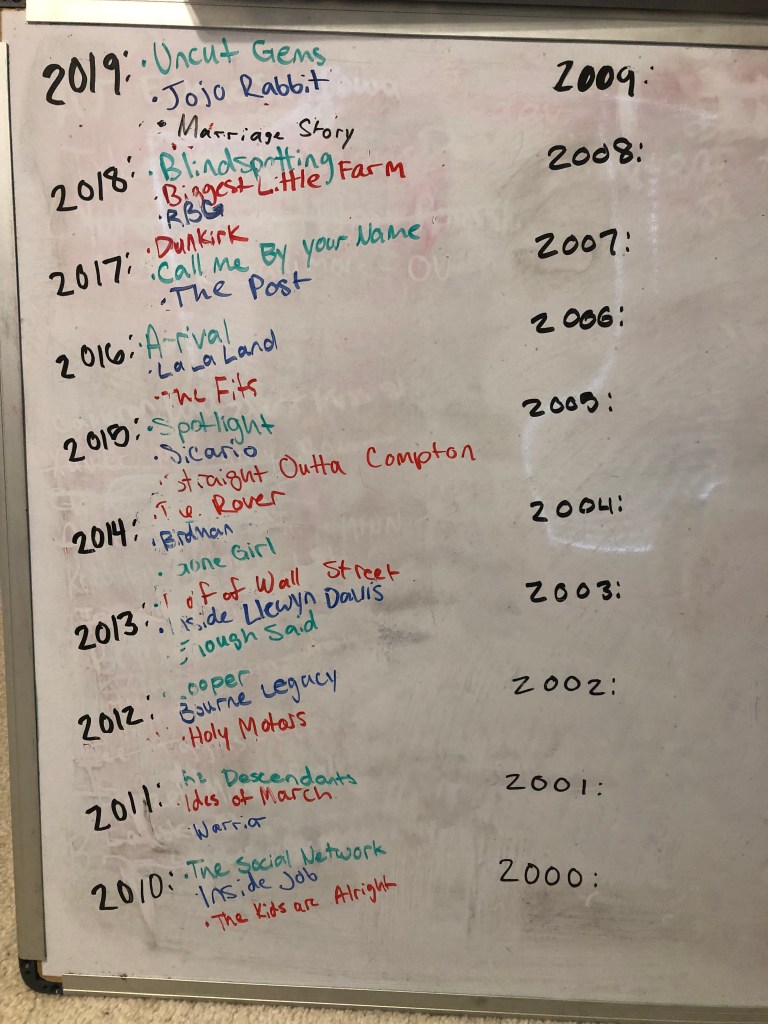 2019:
· Uncut Gems
· Jojo Rabbit
· Marriage Story
2018:
· Blindspotting
· Biggest Little Farm
· RBG
2017:
· Dunkirk
· Call me By your Name
· The Post
2016:
· Arrival
· La La Land
· The Fits
2015:
· Spotlight
· Sicario
· straight Outta Compton
2014:
· The Rover
· Birdman
· Gone Girl
2013:
· of Wall Street
· Inside Llewyn Davis
· Enough Said
2012:
ooper
Bourne Legacy
· Holy Motors
2011:
The Descendants
· Ides of March
· Warrior
2010:
· The Social Network
· Inside Job
· The Kids are Alright
2009:
2008:
2007:
2006:
2005:
2004:
2003:
2002:
2001:
2000: